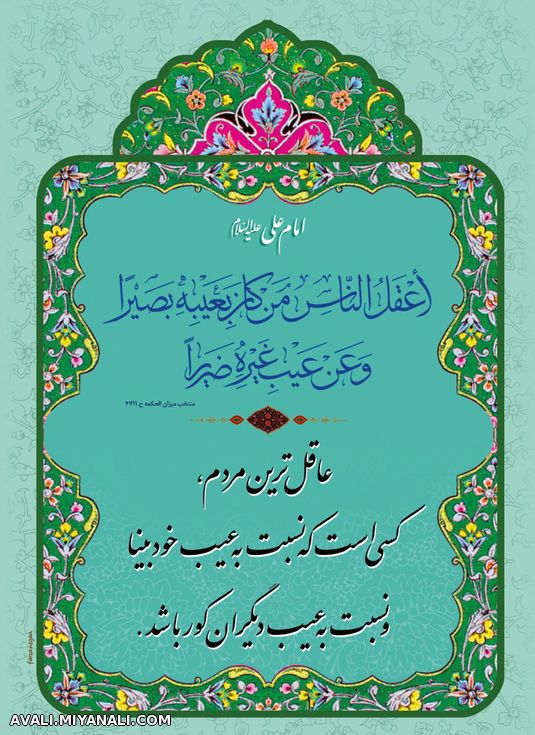 امام علی علیه‌السلام
أَعْقَلُ النَّاسِ مَن كَانَ بِعَيْبِهِ بَصِيرًا
وَعَن عَيْبِ غَيْرِهِ ضَرِيرًا
منتخب میزان الحکمه ح ۲۷۱۱
عاقل ترین مردم،
کسی است که نسبت به عیب خود بینا
و نسبت به عیب دیگران کور باشد.
AVALI.MIYANALI.COM